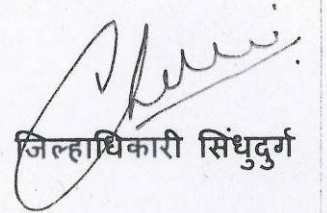 जिल्हाधिकारी सिंधुदुर्ग